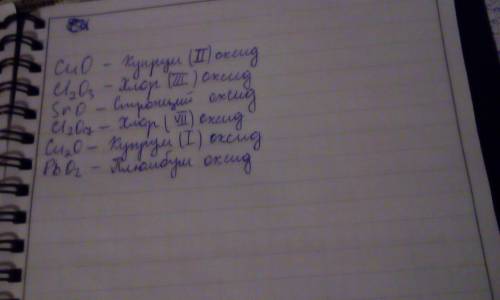 CuO – Купрум (II) оксид
Cl₂O₃ – Хлор (III) оксид
SrO – Стронций оксид
Cl₂O₇ – Хлор (VII) оксид
Cu₂O – Купрум (I) оксид
PbO₂ – Плюмбум оксид